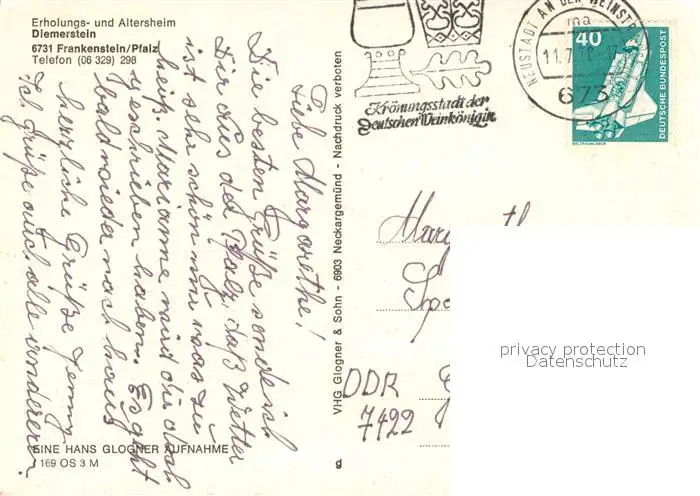 Erholungs- und Altersheim
Diemerstein
6731 Frankenstein/Pfalz
Telefon (06 329) 298
Liebe Margarethe!
Die besten Grüße sende ich
Dir aus der Pfalz, daß Wetter
ist sehr schön nur was zu
heiß. Marianne wird dir doch
geschrieben haben. Es geht
bald wieder nach haus
herzliche Grüße Jenny
Ich grüße auch alle anderen.
EINE HANS GLOGNER AUFNAHME
169 OS 3 M
VHG Glogner & Sohn - 6903 Neckargemünd - Nachdruck verboten
g
Krönungsstadt der
Deutschen Weinkönigin
NEUSTADT AN DER WEINSTR
ma
11.7.
673
40
DEUTSCHE BUNDESPOST
WELTRAUMLABOR
DDR
7422
privacy protection
Datenschutz